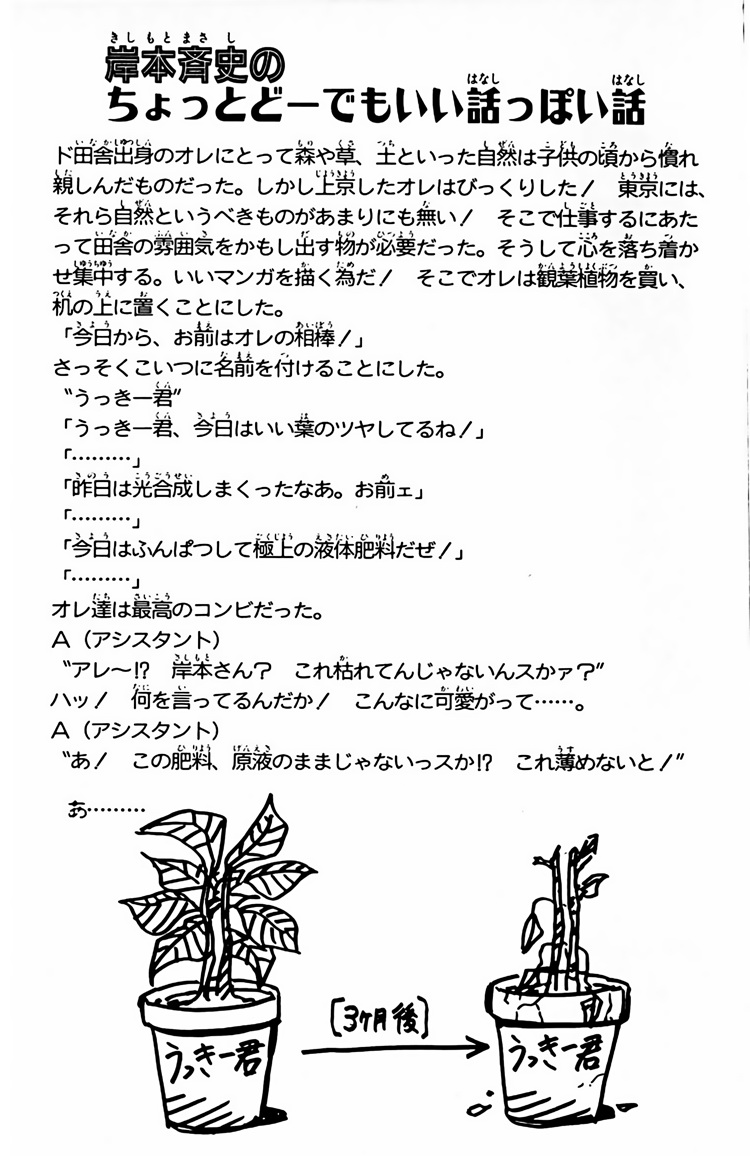 岸本斉史の
ちょっとどーでもいい話っぽい話
ド田舎出身のオレにとって森や草、土といった自然は子供の頃から慣れ
親しんだものだった。しかし上京したオレはびっくりした！　東京には、
それら自然というべきものがあまりにも無い！　そこで仕事するにあた
って田舎の雰囲気をかもし出す物が必要だった。そうして心を落ち着か
せ集中する。いいマンガを描く為だ！　そこでオレは観葉植物を買い、
机の上に置くことにした。
「今日から、お前はオレの相棒！」
さっそくこいつに名前を付けることにした。
〝うっきー君〟
「うっきー君、今日はいい葉のツヤしてるね！」
「………」
「昨日は光合成しまくったなあ。お前ェ」
「………」
「今日はふんぱつして極上の液体肥料だぜ！」
「………」
オレ達は最高のコンビだった。
A（アシスタント）
〝アレ～!?　岸本さん？　これ枯れてんじゃないんスかァ？〟
ハッ！　何を言ってるんだか！　こんなに可愛がって……。
A（アシスタント）
〝あ！　この肥料、原液のままじゃないっスか!?　これ薄めないと！〟
あ………
[3ヶ月後]
うっきー君
うっきー君